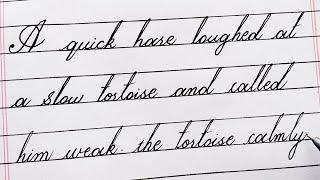 A quick hare laughed at
a slow tortoise and called
him weak. the tortoise calmly